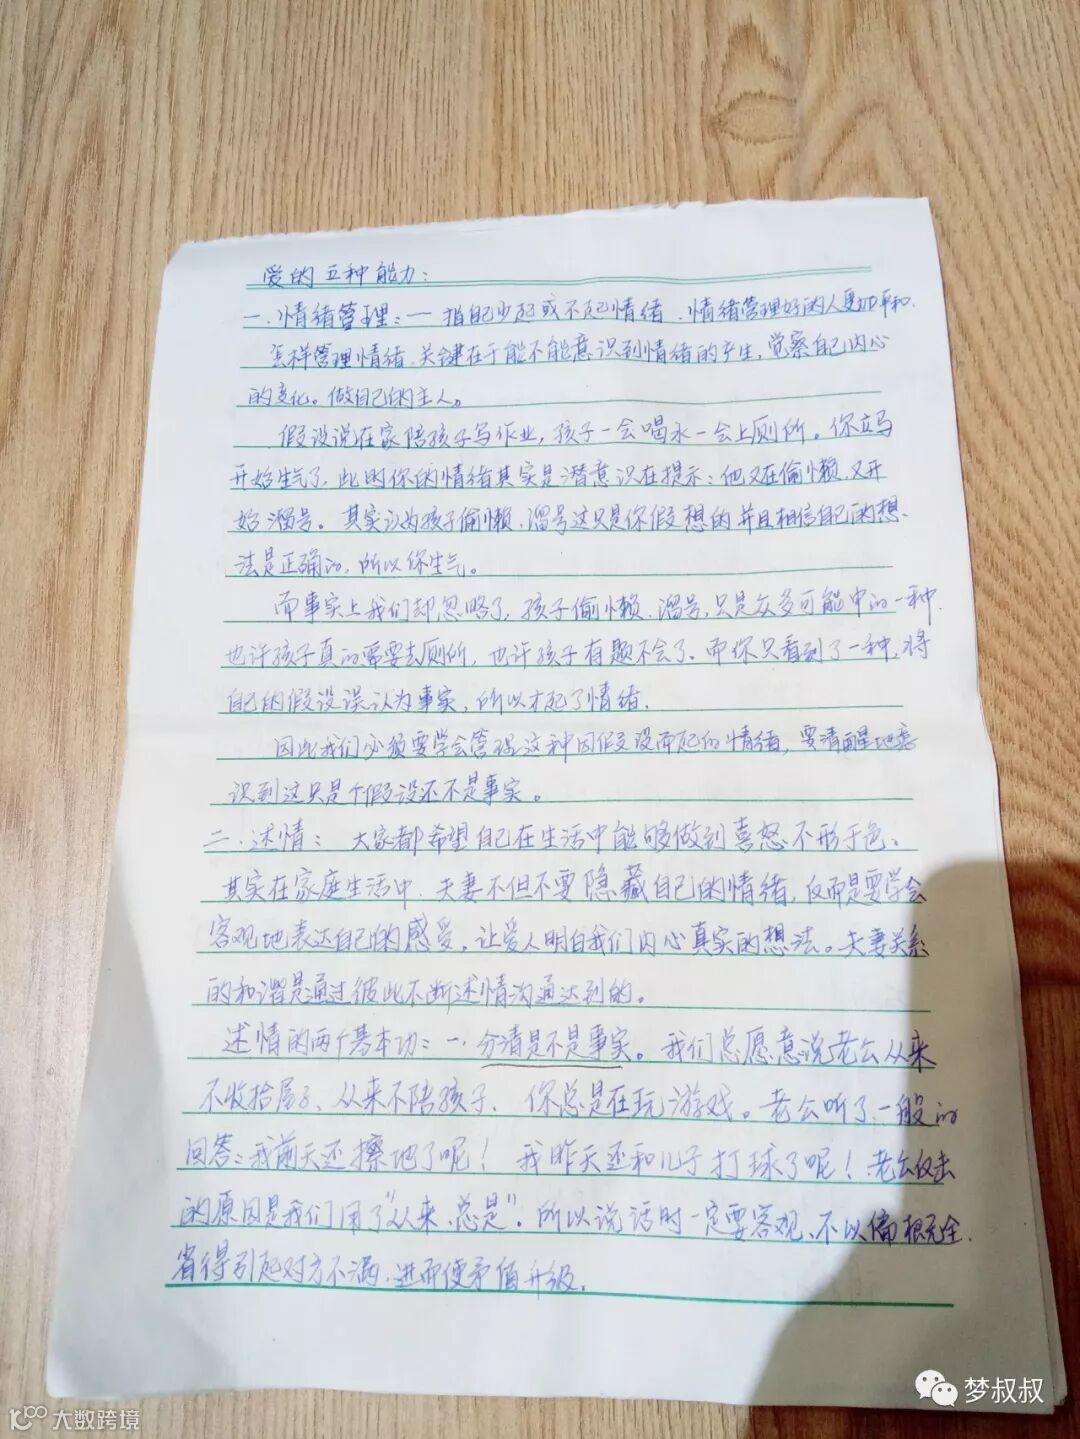 爱的五种能力：
一.情绪管理：一指自己少起或不起情绪.情绪管理好的人更加平和.
怎样管理情绪.关键在于能不能意识到情绪的产生,觉察自己内心
的变化。做自己的主人。
假设说在家陪孩子写作业,孩子一会喝水一会上厕所。你立马
开始生气了,此时你的情绪其实是潜意识在提示：他又在偷懒.又开
始溜号。其实认为孩子偷懒.溜号这只是你假想的并且相信自己的想
法是正确的,所以你生气。
而事实上我们却忽略了,孩子偷懒.溜号,只是众多可能中的一种.
也许孩子真的需要去厕所,也许孩子有题不会了.而你只看到了一种,将
自己的假设误认为事实,所以才起了情绪.
因此我们必须要学会管理这种因假设而起的情绪,要清醒地意
识到这只是个假设还不是事实。
二.述情：大家都希望自己在生活中能够做到喜怒不形于色、
其实在家庭生活中.夫妻不但不要隐藏自己的情绪,反而是要学会
客观地表达自己的感受,让爱人明白我们内心真实的想法。夫妻关系
的和谐是通过彼此不断述情沟通达到的。
述情的两个基本功：一.分清是不是事实。我们总愿意说老公从来
不收拾屋子、从来不陪孩子.你总是在玩游戏。老公听了一般的
回答：我前天还擦地了呢！我昨天还和儿子打球了呢！老公反击
的原因是我们用了“从来.总是”.所以说话时一定要客观、不以偏概全.
省得引起对方不满.进而使矛盾升级.
梦叔叔
大数跨境